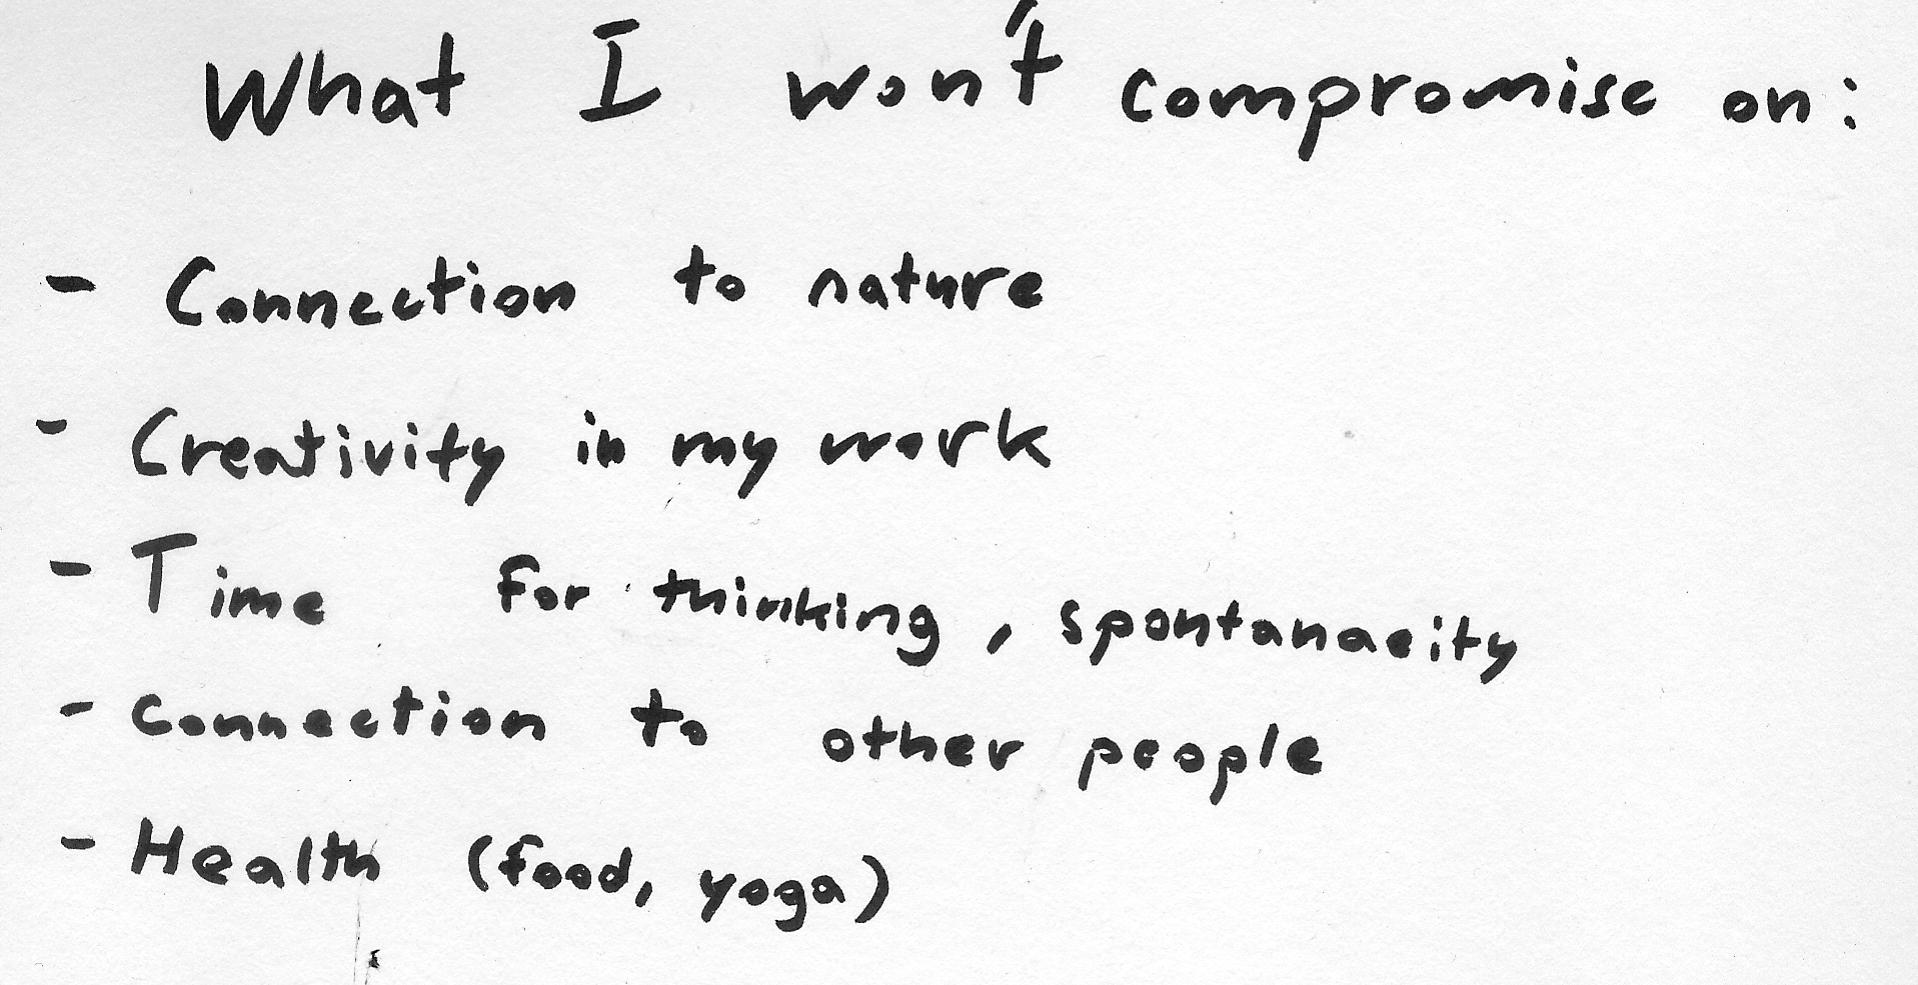 What I won't compromise on:
- Connection to nature
- Creativity in my work
- Time for thinking, spontanaeity
- Connection to other people
- Health (food, yoga)